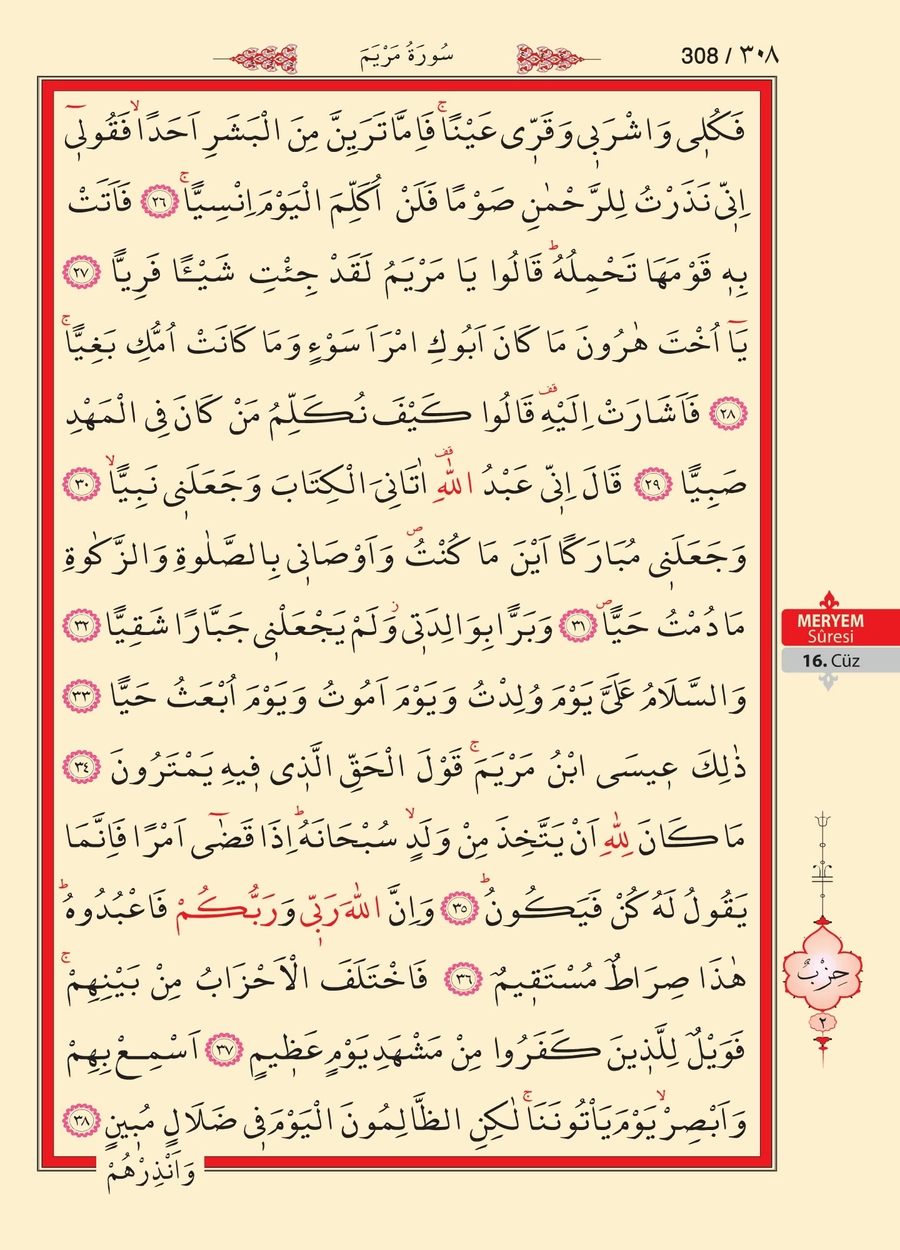 سُورَةُ مَرْيَمَ
308 / ٣٠٨
فَكُلٖي وَاشْرَبٖي وَقَرّٖي عَيْنًاۚ فَاِمَّا تَرَيِنَّ مِنَ الْبَشَرِ اَحَدًاۙ فَقُولٖٓي
اِنّٖي نَذَرْتُ لِلرَّحْمٰنِ صَوْمًا فَلَنْ اُكَلِّمَ الْيَوْمَ اِنْسِيًّاۚ ﴿٢٦﴾ فَاَتَتْ
بِهٖ قَوْمَهَا تَحْمِلُهُؕ قَالُوا يَا مَرْيَمُ لَقَدْ جِئْتِ شَيْـًٔا فَرِيًّا ﴿٢٧﴾
يَٓا اُخْتَ هٰرُونَ مَا كَانَ اَبُوكِ امْرَاَ سَوْءٍ وَمَا كَانَتْ اُمُّكِ بَغِيًّاۚ
﴿٢٨﴾ فَاَشَارَتْ اِلَيْهِقف قَالُوا كَيْفَ نُكَلِّمُ مَنْ كَانَ فِي الْمَهْدِ
صَبِيًّا ﴿٢٩﴾ قَالَ اِنّٖي عَبْدُ اللّٰهِقف اٰتَانِيَ الْكِتَابَ وَجَعَلَنٖي نَبِيًّاۙ ﴿٣٠﴾
وَجَعَلَنٖي مُبَارَكًا اَيْنَ مَا كُنْتُص وَاَوْصَانٖي بِالصَّلٰوةِ وَالزَّكٰوةِ
مَا دُمْتُ حَيًّاص ﴿٣١﴾ وَبَرًّا بِوَالِدَتٖيز وَلَمْ يَجْعَلْنٖي جَبَّارًا شَقِيًّا ﴿٣٢﴾
وَالسَّلَامُ عَلَيَّ يَوْمَ وُلِدْتُ وَيَوْمَ اَمُوتُ وَيَوْمَ اُبْعَثُ حَيًّا ﴿٣٣﴾
ذٰلِكَ عٖيسَى ابْنُ مَرْيَمَۚ قَوْلَ الْحَقِّ الَّذٖي فٖيهِ يَمْتَرُونَ ﴿٣٤﴾
مَا كَانَ لِلّٰهِ اَنْ يَتَّخِذَ مِنْ وَلَدٍۙ سُبْحَانَهُؕ اِذَا قَضٰٓى اَمْرًا فَاِنَّمَا
يَقُولُ لَهُ كُنْ فَيَكُونُؕ ﴿٣٥﴾ وَاِنَّ اللّٰهَ رَبّٖي وَرَبُّكُمْ فَاعْبُدُوهُؕ
هٰذَا صِرَاطٌ مُسْتَقٖيمٌ ﴿٣٦﴾ فَاخْتَلَفَ الْاَحْزَابُ مِنْ بَيْنِهِمْۚ
فَوَيْلٌ لِلَّذٖينَ كَفَرُوا مِنْ مَشْهَدِ يَوْمٍ عَظٖيمٍ ﴿٣٧﴾ اَسْمِعْ بِهِمْ
وَاَبْصِرْۙ يَوْمَ يَأْتُونَنَاۚ لٰكِنِ الظَّالِمُونَ الْيَوْمَ فٖي ضَلَالٍ مُبٖينٍ ﴿٣٨﴾
وَاَنْذِرْهُمْ
MERYEM
Sûresi
16. Cüz
حِزْبٌ
٢